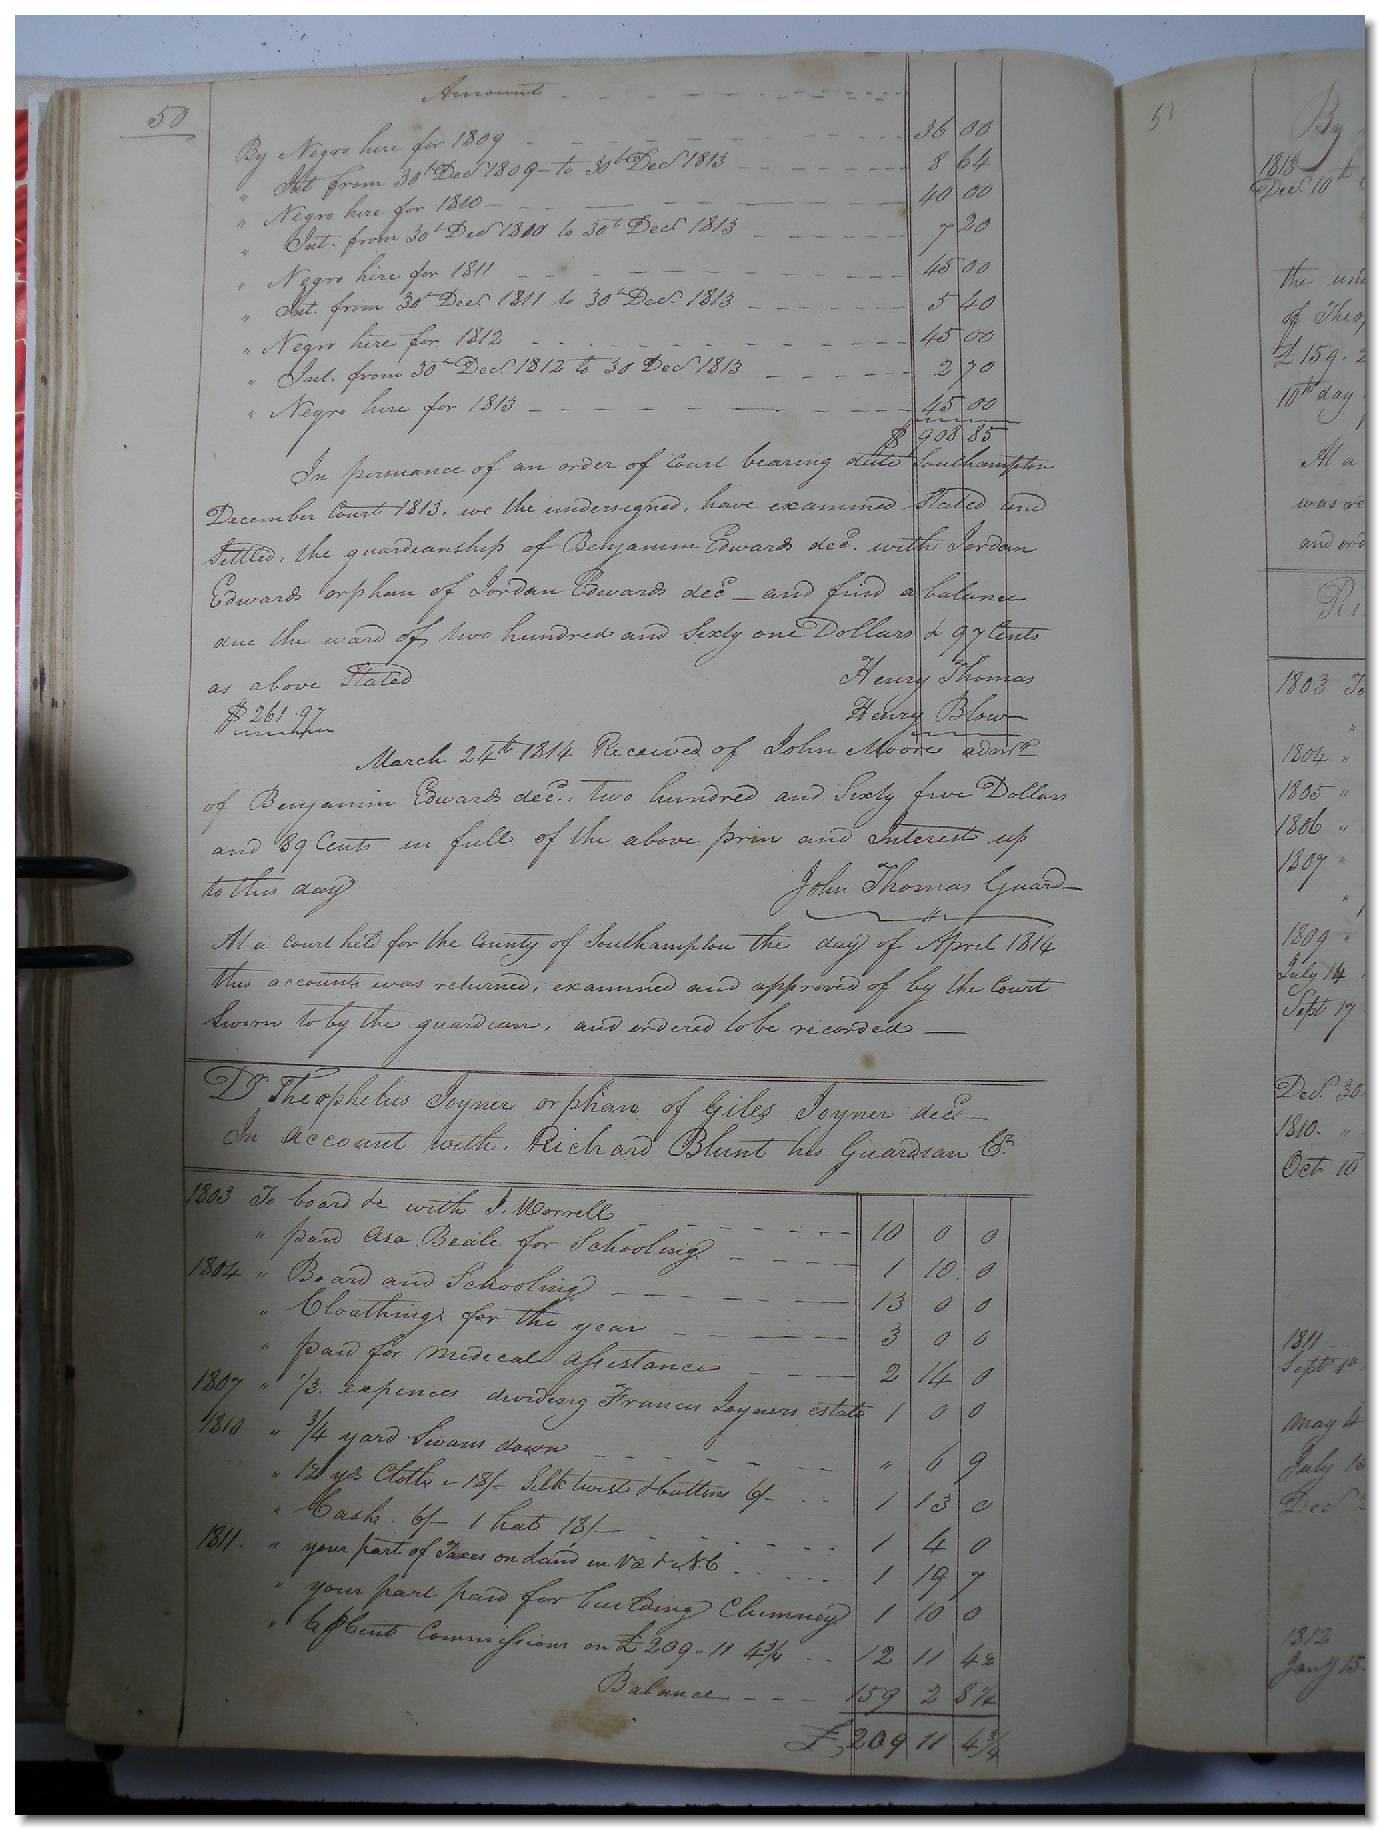 50
Amount
By Negro hire for 1809 36 00
" Int from 30th Decr 1809 to 30th Decr 1813 8 64
" Negro hire for 1810 40 00
" Int. from 30th Decr 1810 to 30th Decr 1813 7 20
" Negro hire for 1811 45 00
" Int. from 30th Decr. 1811 to 30th Decr. 1813 5 40
" Negro hire for 1812 45 00
" Int. from 30th Decr 1812 to 30 Decr 1813 2 70
" Negro hire for 1813 45 00
$ 908 85
In persuance of an order of Court bearing date Southampton
December Court 1813. we the undersigned, have examined Stated and
Settled, the guardianship of Benjamin Edwards decd. with Jordan
Edwards orphan of Jordan Edwards decd and find a balance
due the ward of two hundred and sixty one Dollars & 97 Cents
as above Stated
Henry Thomas
$261.97
Henry Blow
March 24th 1814 Received of John Moore admr
of Benjamin Edwards decd., two hundred and Sixty five Dollars
and 89 Cents in full of the above prin and Interest up
to this day
John Thomas Guard
At a Court held for the County of Southampton the day of April 1814
this account was returned, examined and approved of by the Court
Sworn to by the guardian, and ordered to be recorded
Dr Theophelus Joyner orphan of Giles Joyner decd
In account with. Richard Blunt his Guardian Cr
1803 To board &c with J. Worrell 10 0 0
" paid Asa Beale for Schooling 1 10 0
1804 " Board and Schooling 13 0 0
" Cloathing for the year 3 0 0
" paid for medecal assistance 2 14 0
1807 " 1/3. expences dividing Francis Joyners estate 1 0 0
1810 " 3/4 yard Swans down " 6 9
" 1½ yds Cloth 18/- Silk twist & buttons 6/- 1 13 0
" Cash. 6/- 1 hat 18/- 1 4 0
1811. " your part of Taxes on Land in Va & NC 1 19 7
" your part paid for building Chimney 1 10 0
" 6 p Cent Commissions on £209.11 4¾ 12 11 4½
Balance 159 2 8¼
£209 11 4¾
51
By
1813
Decr. 10th
the und
of Theop
£159. 2
10th day
At a
was re
and ord
1803 To
"
1804 "
1805 "
1806 "
1807 "
"
1809 "
July 14
Sept 17
Decr. 30
1810. "
Oct 10
1811
Sept
May 4
July
Decr
1812
Jany 15